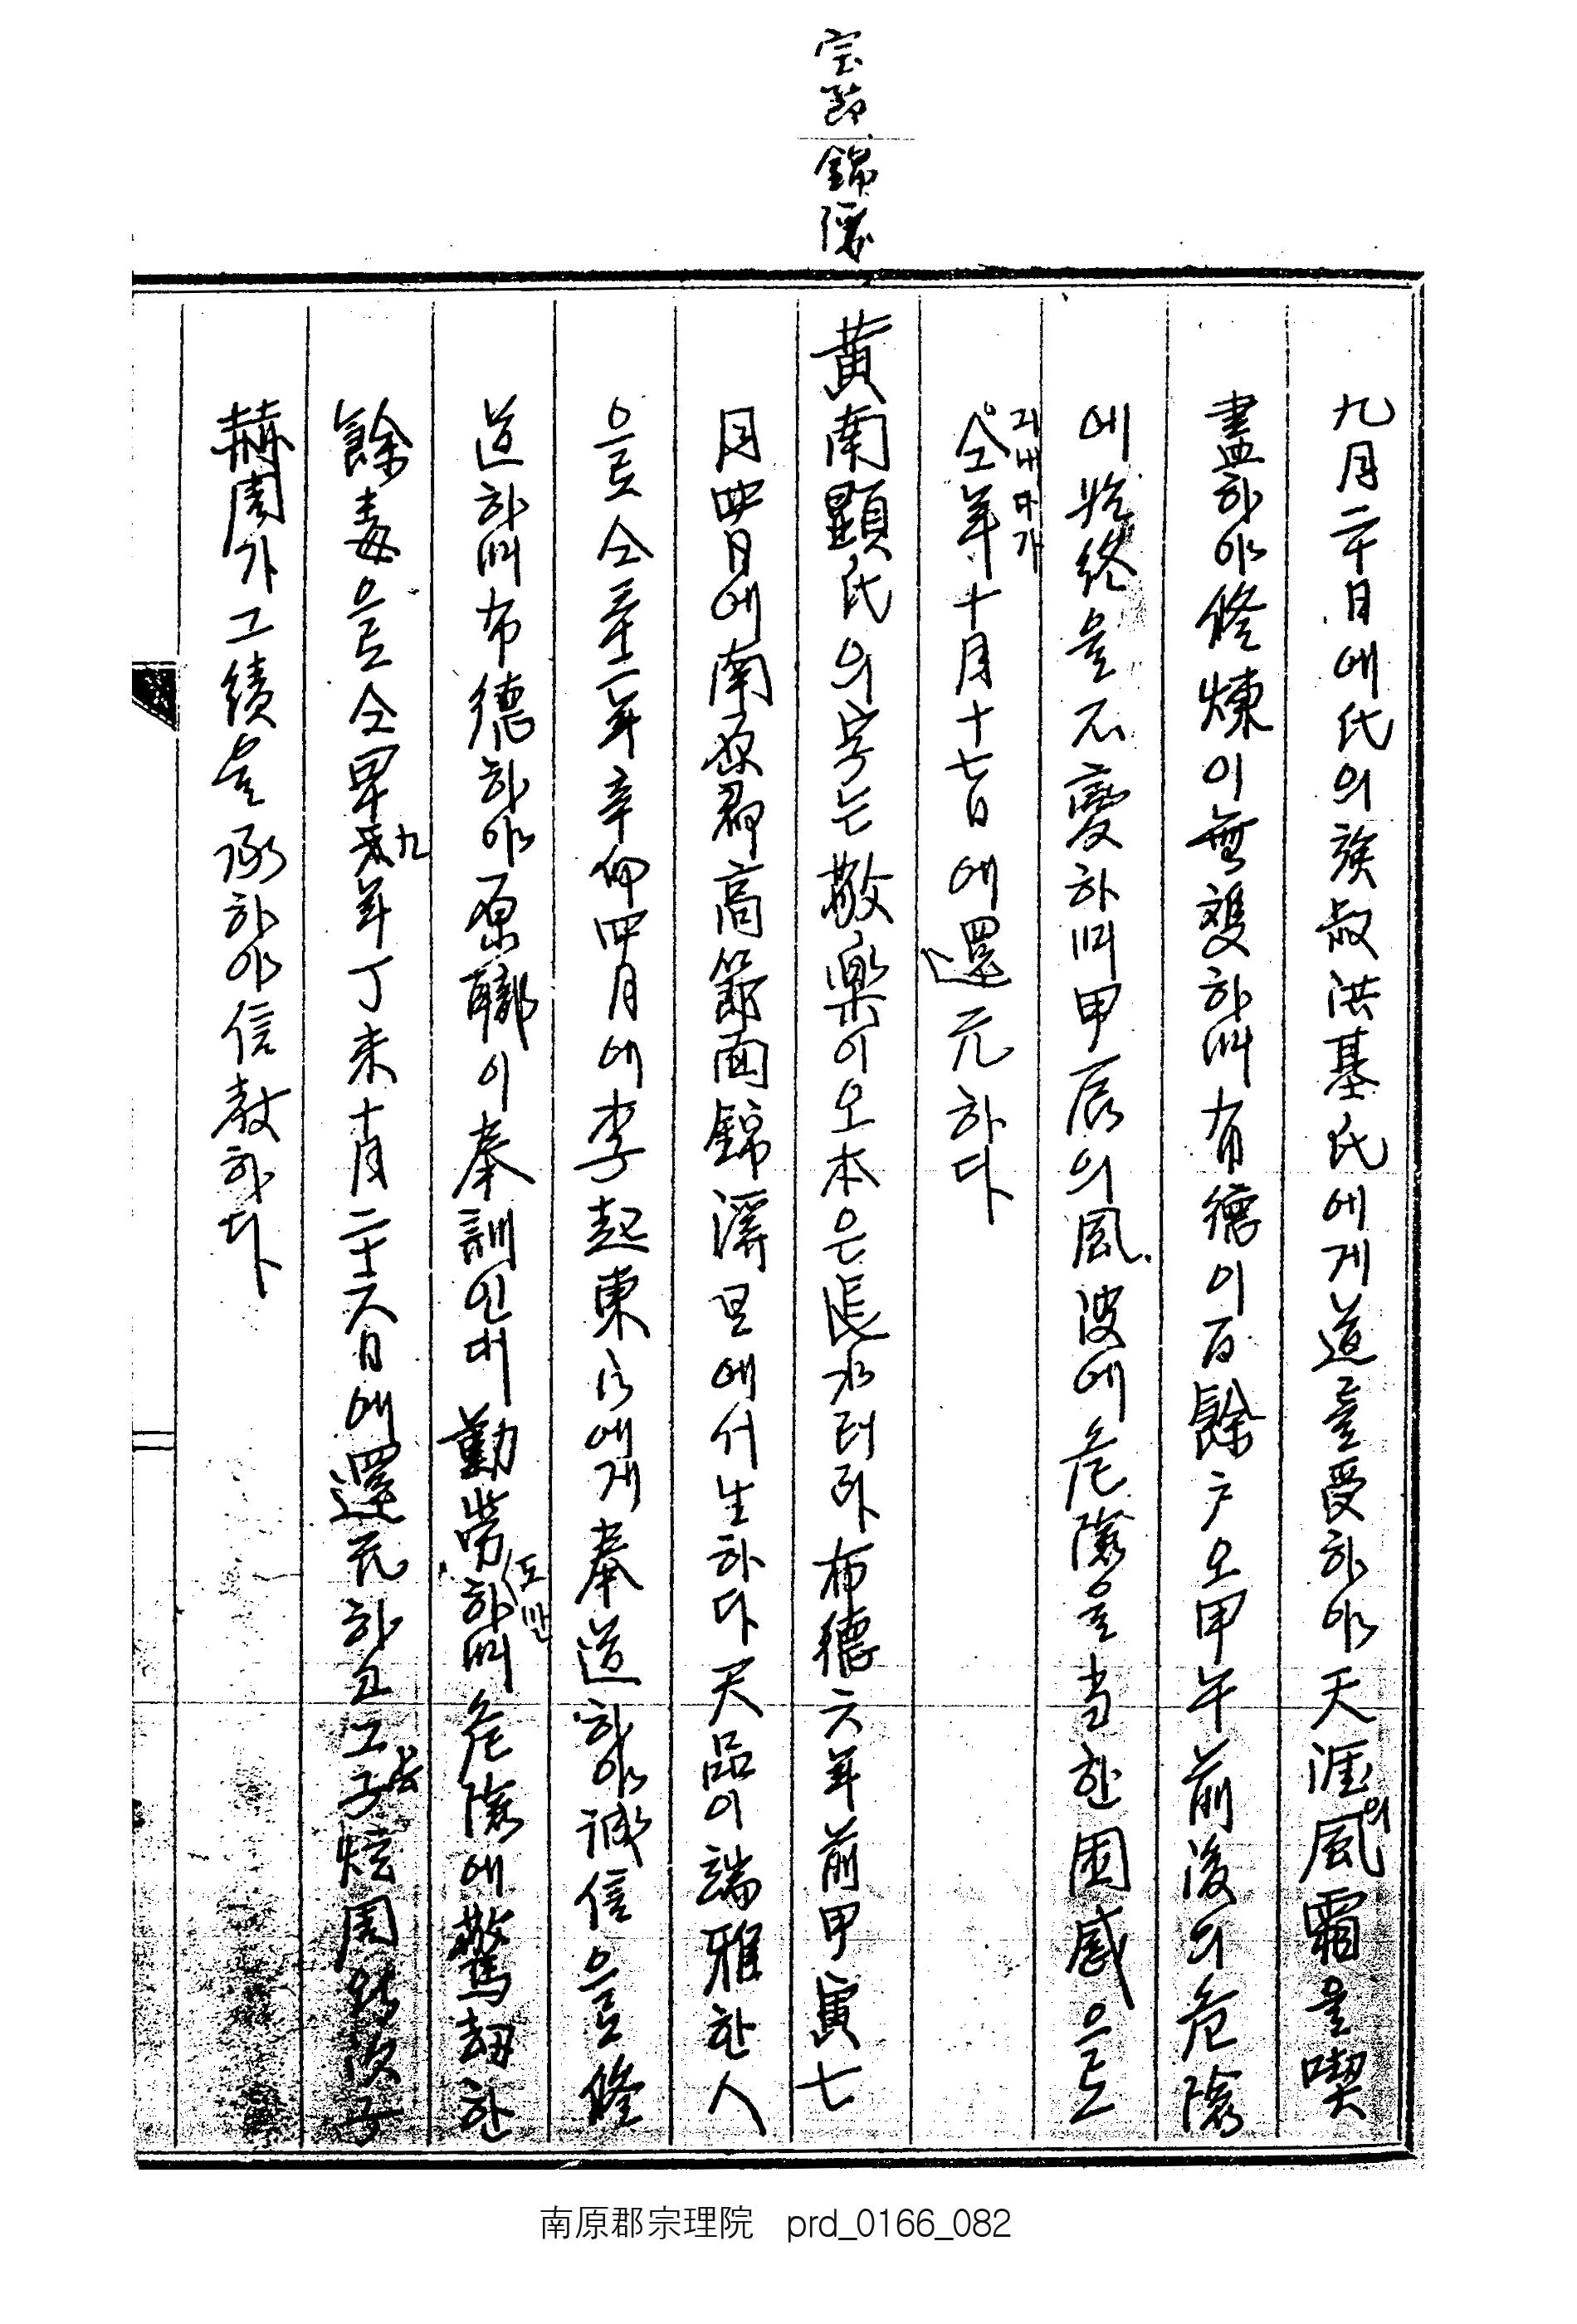 宝節 錦溪
九月二十日에氏의族叔洪基氏에게道를受하야天涯의風霜을喫
盡하야修煉이無雙하며布德이百餘户오甲午前後의危險
에始終을不變하며甲辰의風波에危險을当한困感으로
지내다가
仝年十月十七日에還元하다
黃南顯氏의字는敬樂이오本은長水러라布德六年前甲寅七
月四日에南原郡高節面錦溪里에서生하다天品이端雅한人
으로仝三十二年辛卯四月에李起東氏에게奉道하야誠信으로修
道하며布德하야原職이奉訓인대勤勞도만하며危險에驚劫한
餘毒으로仝四十九年丁未十月二十六日에還元하고그長子炫周와次子
赫周가그績을承하야信敎하다
南原郡宗理院 prd_0166_082